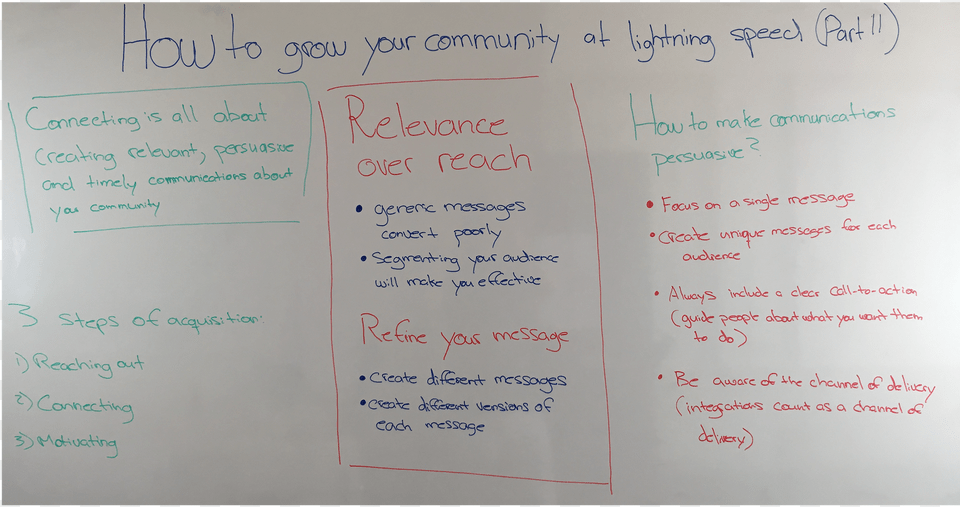 How to grow your community at lightning speed (Part II)
Connecting is all about
creating relevant, persuasive
and timely communications about
your community
3 steps of acquisition:
1) Reaching out
2) Connecting
3) Motivating
Relevance
over reach
• generic messages
convert poorly
• Segmenting your audience
will make you effective
Refine your message
• Create different messages
• Create different versions of
each message
How to make communications
persuasive?
• Focus on a single message
• Create unique messages for each
audience
• Always include a clear call-to-action
(guide people about what you want them
to do)
• Be aware of the channel of delivery
(integrations count as a channel of
delivery)